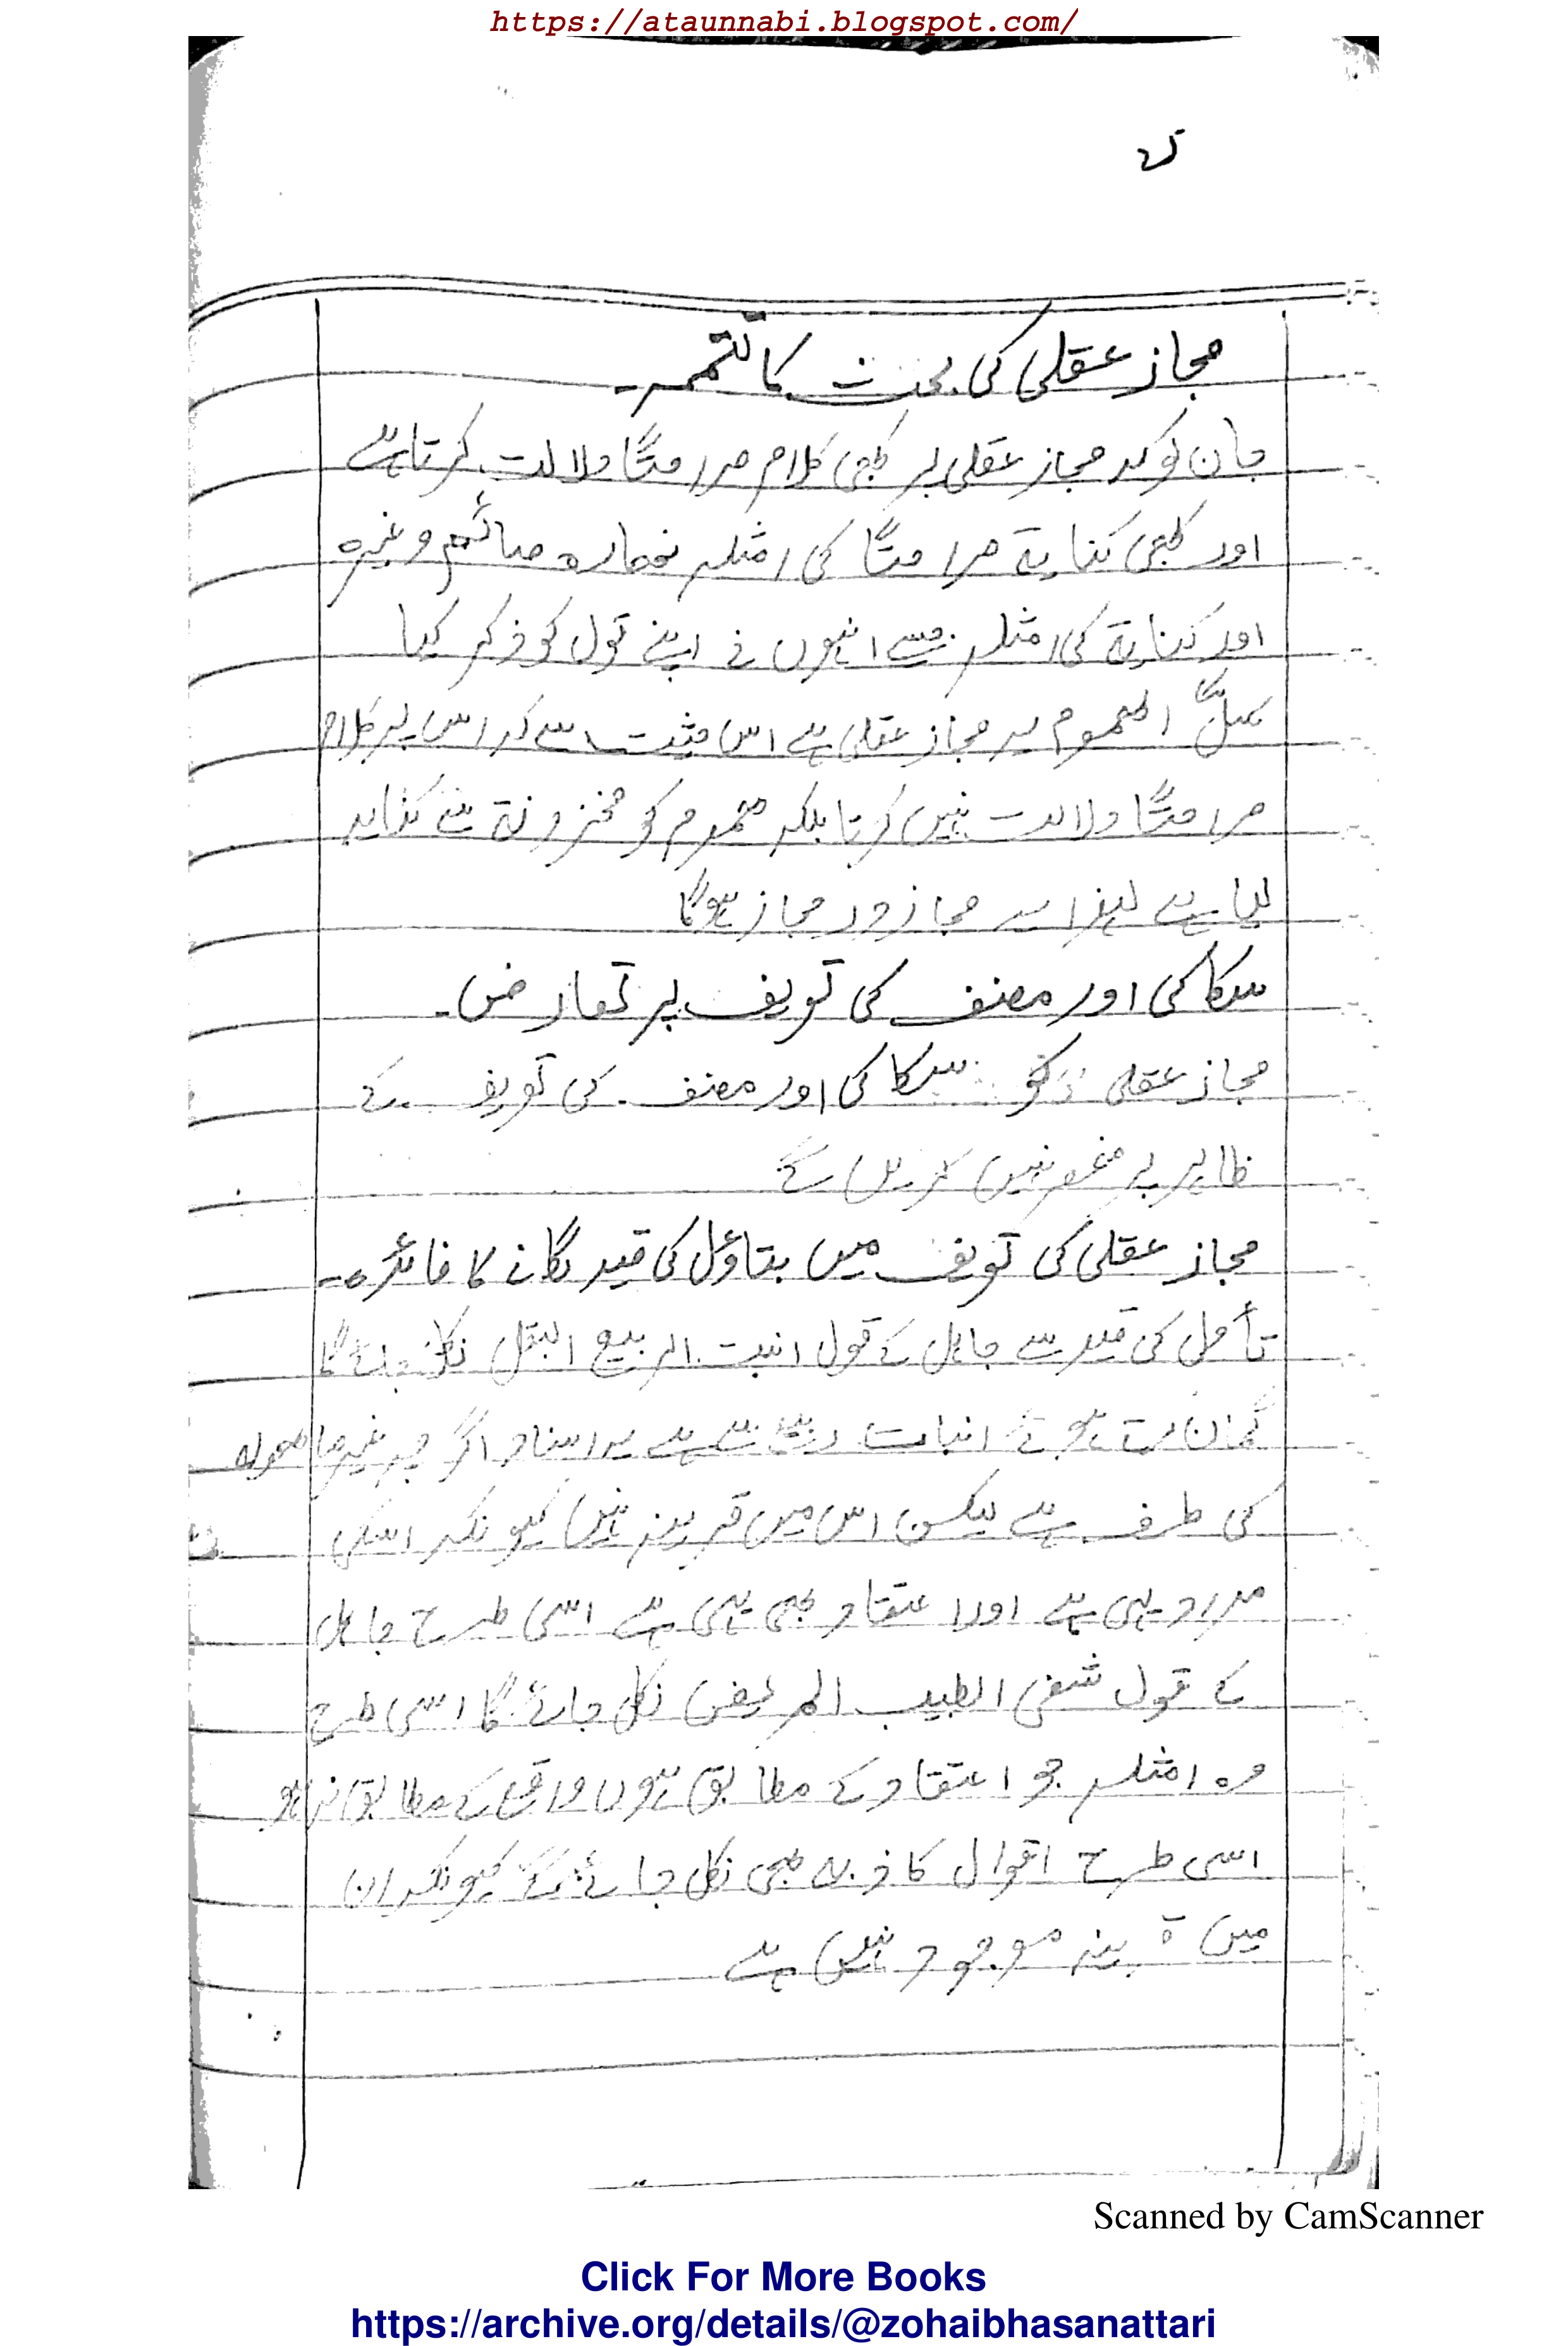 https://ataunnabi.blogspot.com/
مجاز عقلی کی بحث کا تتمہ۔
جان لو کہ مجاز عقلی پر کبھی کلام صراحتًا دلالت کرتا ہے
اور کبھی کنایۃ صراحتًا کی امثلہ نھارہ صائم وغیرہ
اور کنایۃ کی امثلہ جیسے انہوں نے اپنے قول کو ذکر کیا
سَلِّ الھموم یہ مجاز عقلی ہے اس حیثیت سے کہ اس پر کلام
صراحتًا دلالت نہیں کرتا بلکہ ھموم کو محزونۃ سے کنایہ
لیا ہے لہٰذا یہ مجاز در مجاز ہوگا
سکاکی اور مصنف کی تعریف پر تعارض۔
مجاز عقلی کو سکاکی اور مصنف کی تعریف کے
ظاہر پر منحصر نہیں کریں گے
مجاز عقلی کی تعریف میں بتاوّل کی قید لگانے کا فائدہ۔
تأول کی قید سے جاہل کے قول انبت الربیع البقل نکل جائے گا
گمان کرتے ہوئے انبات ربیع سے ہے یہ اسناد اگرچہ غیر ما ھولہ
کی طرف ہے لیکن اس میں قرینہ نہیں کیونکہ اسکی
مراد یہی ہے اور اعتقاد بھی یہی ہے اسی طرح جاہل
کے قول شفی الطبیب المریض نکل جائے گا اسی طرح
وہ امثلہ جو اعتقاد کے مطابق ہوں واقع کے مطابق نہ ہو
اسی طرح اقوال کاذبہ بھی نکل جائے گے کیونکہ ان
میں قرینہ موجود نہیں ہے
Scanned by CamScanner
Click For More Books
https://archive.org/details/@zohaibhasanattari